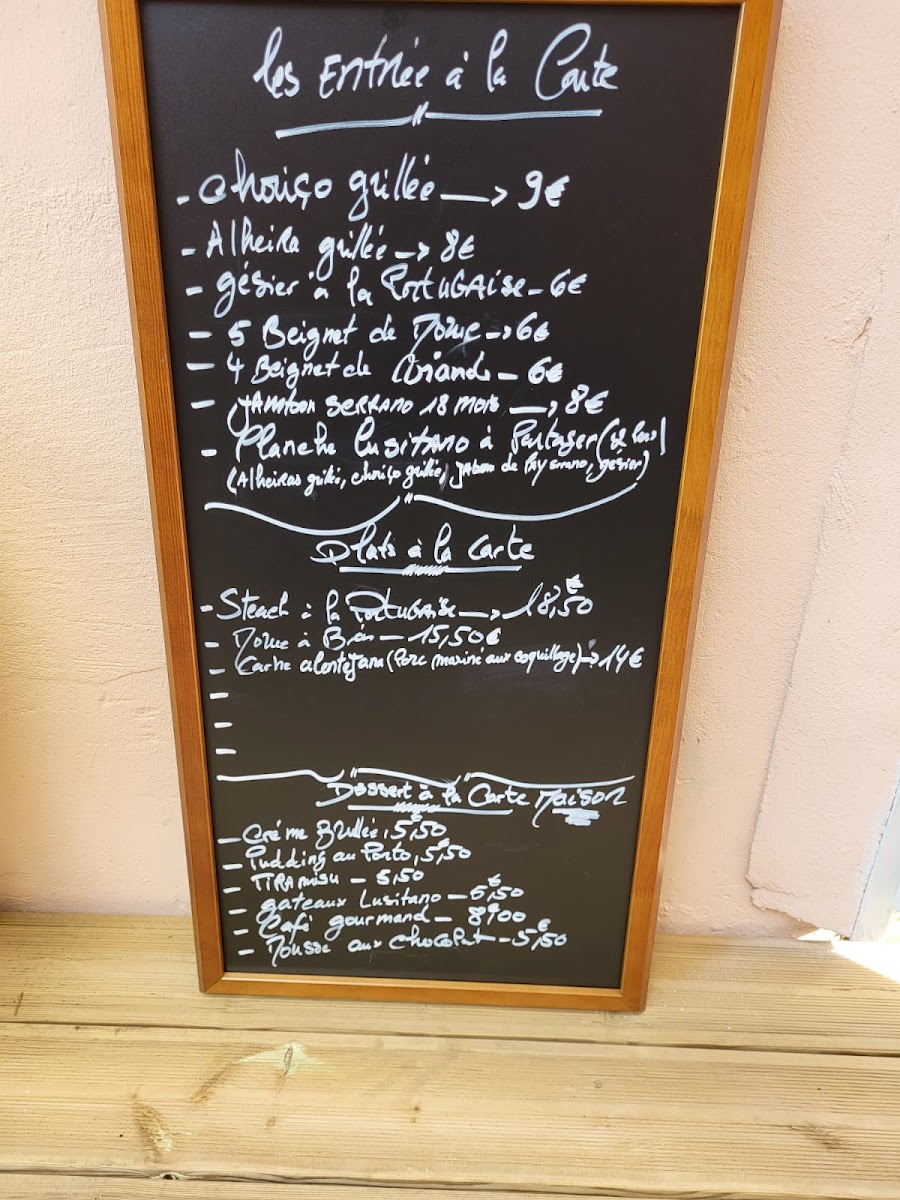 les Entrée à la Carte
- choriço grillée —> 9€
- Alheira grillée -> 8€
- gésier à la Portugaise - 6€
- 5 Beignet de Morue -> 6€
- 4 Beignet de Viande - 6€
- Jambon Serrano 18 mois —> 8€
- Planche Lusitano à Partager
(Alheiras grillé, choriço grillée, de Pay gésier)
Plats à la Carte
- Steack à la Portugaise —> 18,50€
- Morue à Brás - 15,50€
- Carne alentejana (Porc mariné aux coquillage) -> 14€
-
-
-
Dessert à la Carte Maison
- Créme Brullée, 5,50€
- Pudding au Porto, 5,50€
- TIRAMISU - 5,50
- gateaux Lusitano - 5,50€
- Café gourmand - 8€00
- Mousse aux chocolat - 5,50€